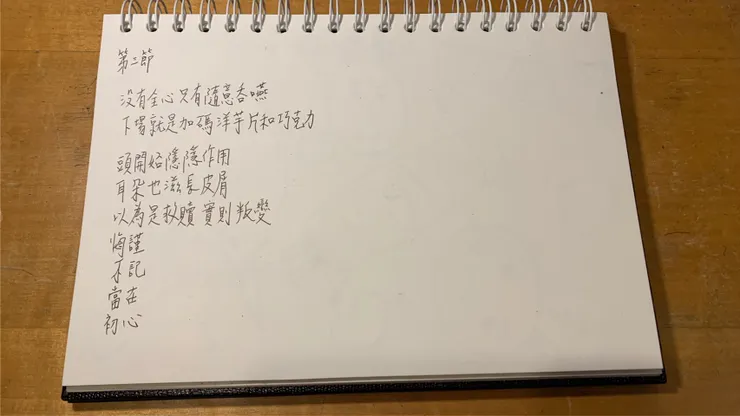 第二節
没有全心只有隨意吞嚥
下場就是加碼洋芋片和巧克力
頭開始隱隱作用
耳朵也滋長皮屑
以為是救贖實則叛變
悔謹
不記
當在
初心